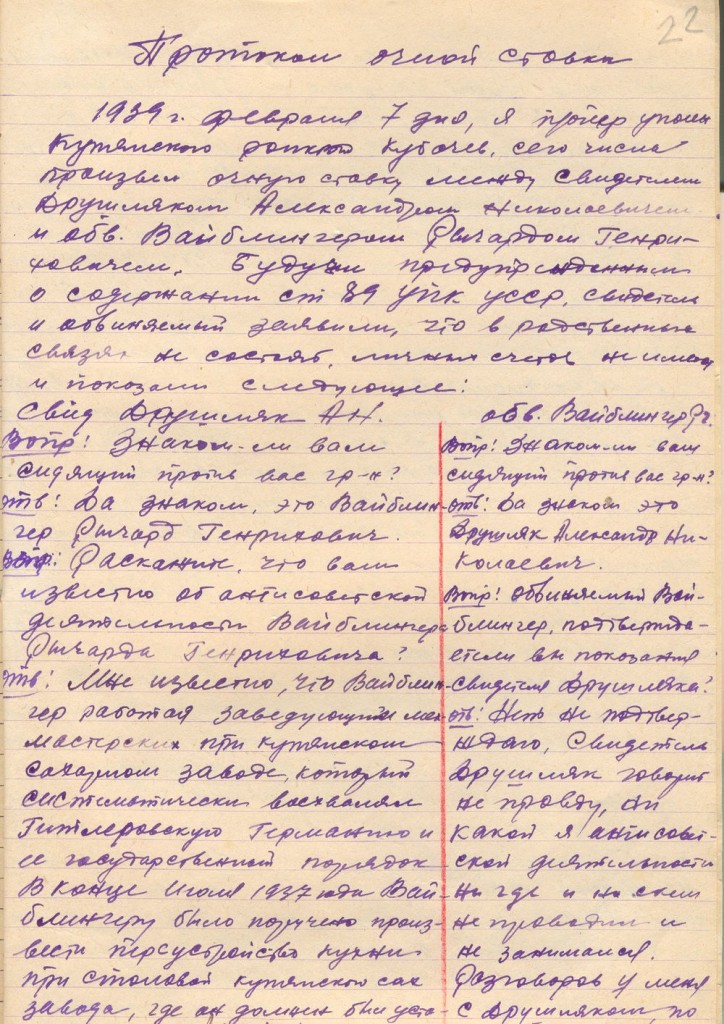 22
Протокол очной ставки
1939 г. февраля 7 дня, я
Кутянского Кубачев, сего числа
произвел очную ставку между свидетелем
Друшляком Александром Николаевичем
и обв. Вайблингером Рычардом Генри-
ховичем. Будучи предупрежденными
о содержании ст 89 УПК УССР, свидетель
и обвиняемый заявили, что в родственных
связях не состоят, личных счетов не имеют
и показали следующее:
Свид Друшляк А.Н.
Вопр: Знаком-ли вам
сидящий против вас гр-н?
Отв: Да знаком, это Вайблин-
гер Рычард Генрихович.
Вопр: Раскажите, что вам
известно об антисоветской
деятельности Вайблингера
Рычарда Генриховича?
Отв: Мне известно, что Вайблин-
гер работая заведующим мех
мастерских при кутянском
сахарном заводе, который
систематически восхвалял
Гитлеровскую Германию и
ее государственный порядок
В конце Июля 1937 года Вай-
блингеру было поручено произ-
вести переустройство кухни
при столовой кутянского сах
завода, где он должен был уста-
обв. Вайблингер Р.Г.
Вопр: Знаком-ли вам
сидящий против вас гр-н?
Отв: Да знаком это
Друшляк Александр Ни-
колаевич.
Вопр: Обвиняемый Вай-
блингер, подтвержда-
ете ли вы показания
свидетеля Друшляка?
Отв: Нет не подтвер-
ждаю, Свидетель
Друшляк говорит
не правду, ни
какой я антисовет-
ской деятельности
ни где и ни с кем
не проводил и
не занимался.
Разговоров у меня
с Друшляком, по